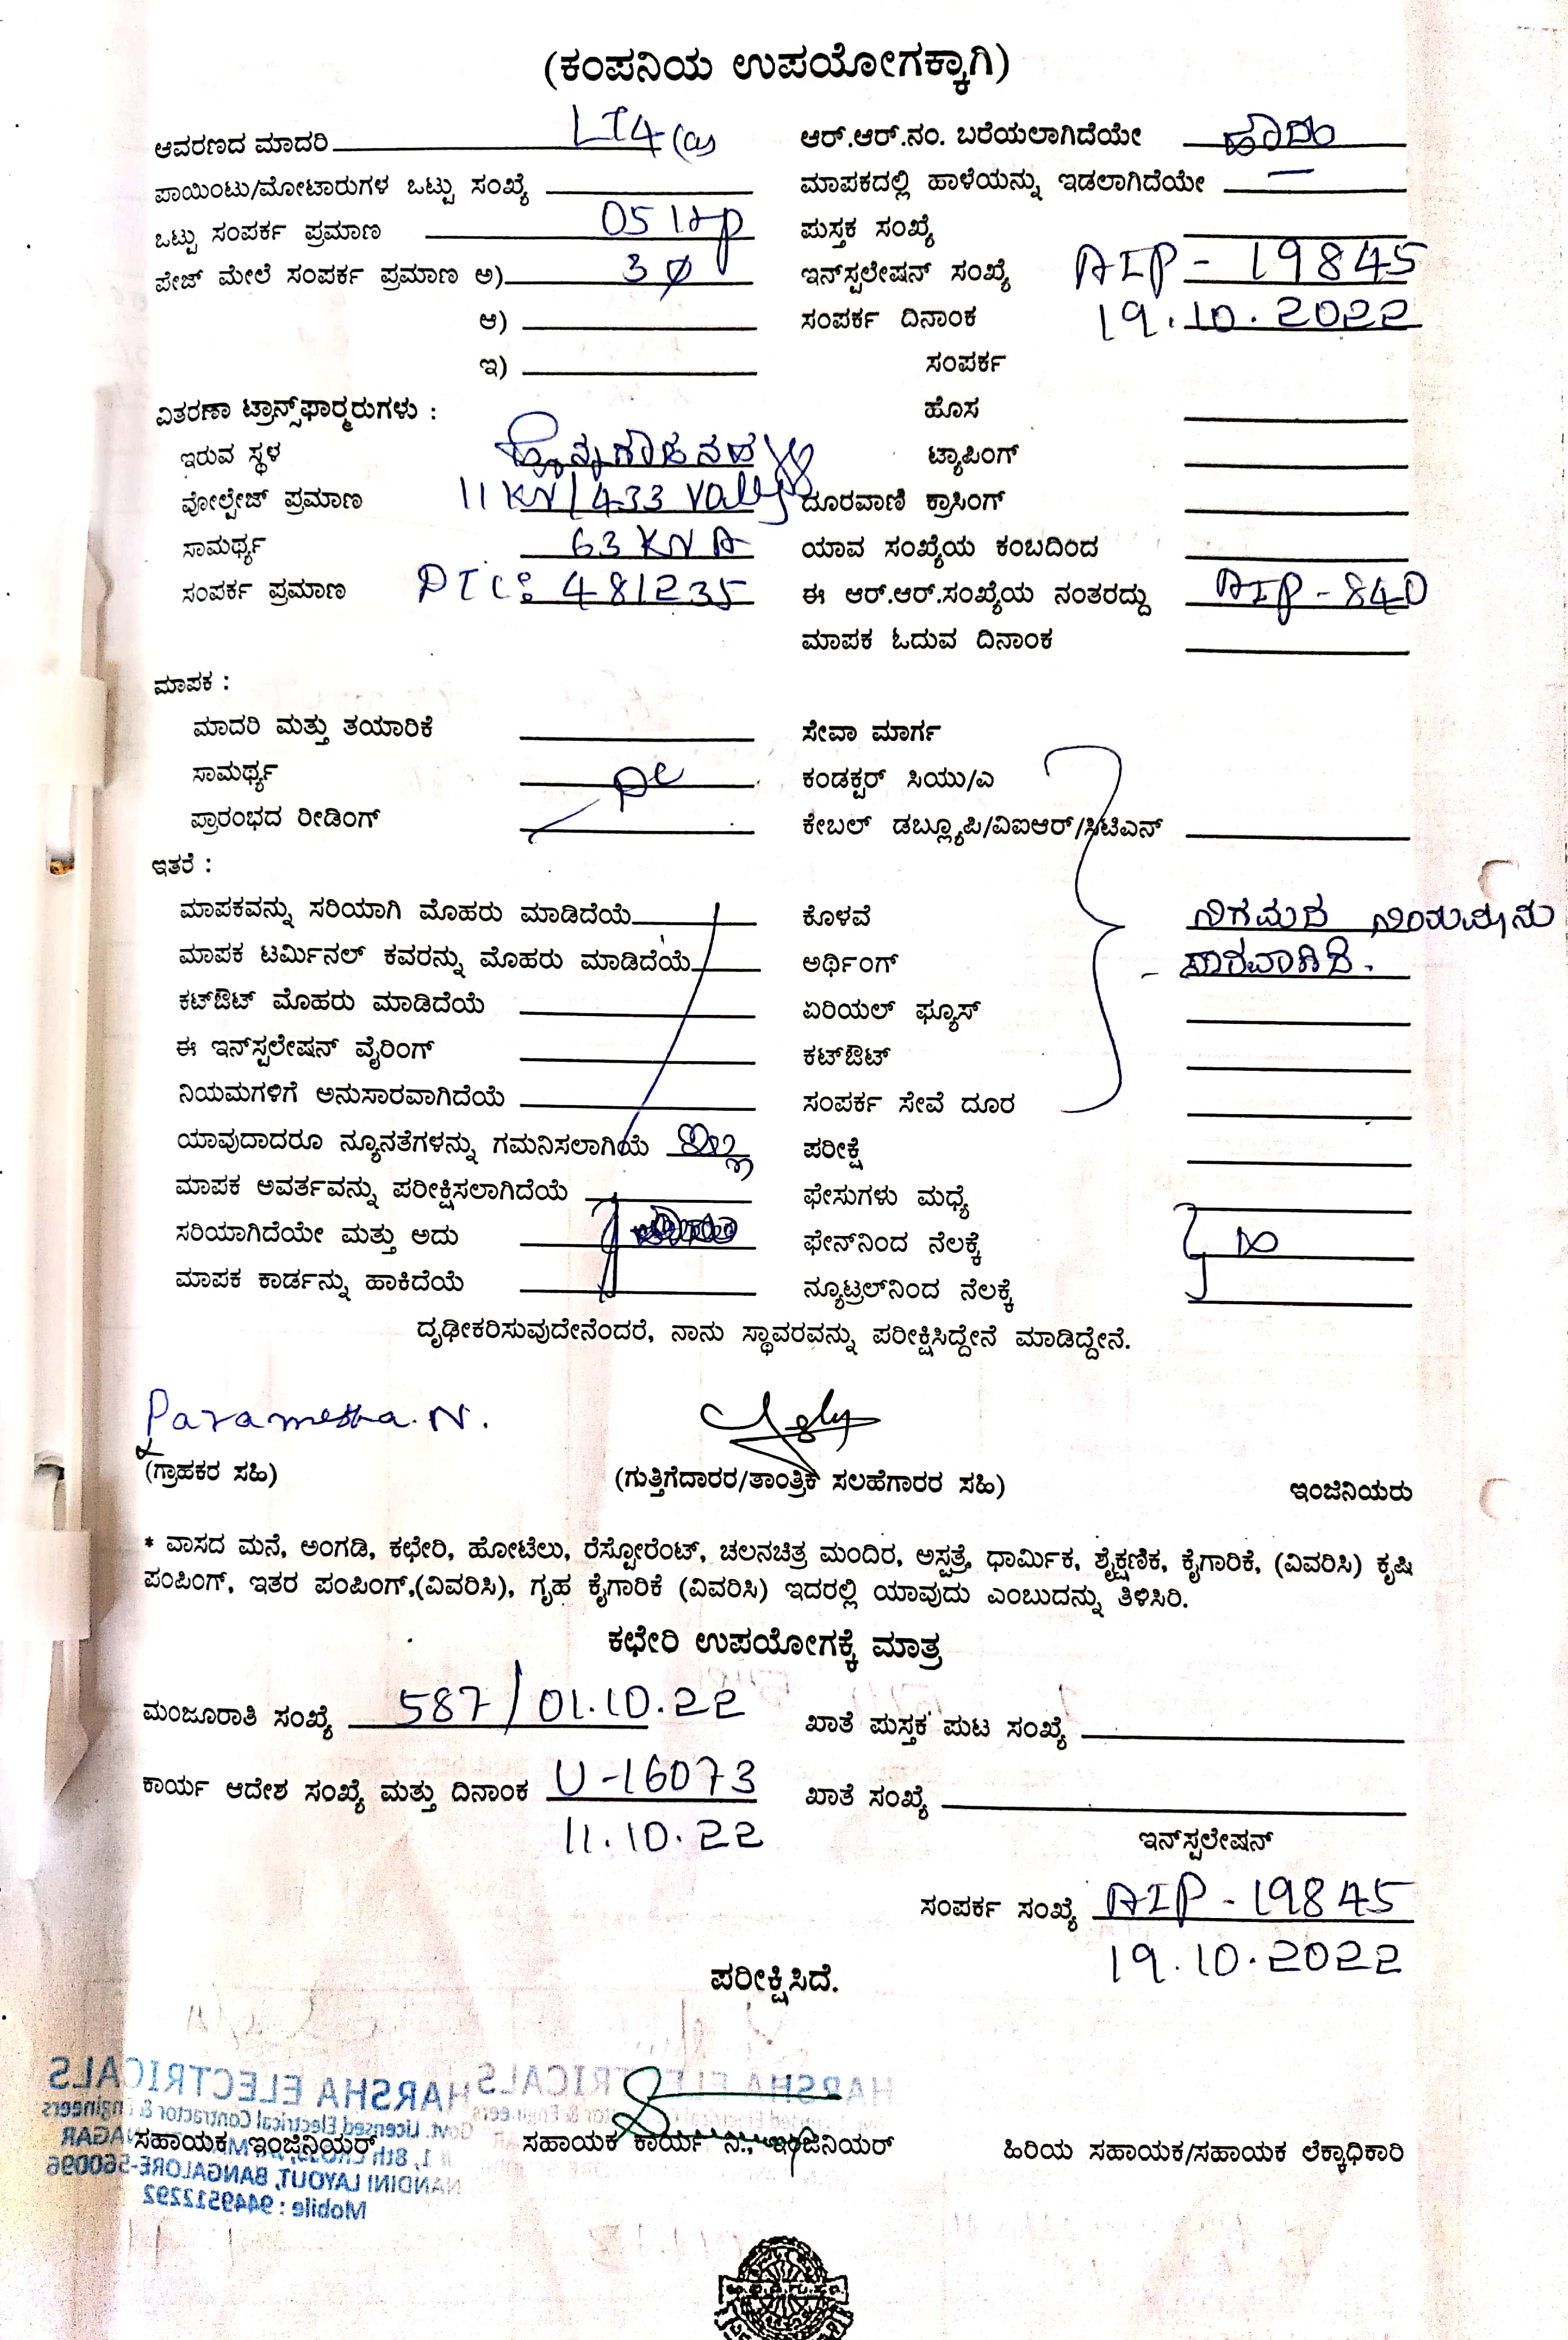 (ಕಂಪನಿಯ ಉಪಯೋಗಕ್ಕಾಗಿ)
ಆವರಣದ ಮಾದರಿ LT4(a) ಆರ್.ಆರ್.ನಂ. ಬರೆಯಲಾಗಿದೆಯೇ ಹೌದು
ಪಾಯಿಂಟು/ಮೋಟಾರುಗಳ ಒಟ್ಟು ಸಂಖ್ಯೆ ಮಾಪಕದಲ್ಲಿ ಹಾಳೆಯನ್ನು ಇಡಲಾಗಿದೆಯೇ —
ಒಟ್ಟು ಸಂಪರ್ಕ ಪ್ರಮಾಣ 05 Hp ಪುಸ್ತಕ ಸಂಖ್ಯೆ
ಪೇಜ್ ಮೇಲೆ ಸಂಪರ್ಕ ಪ್ರಮಾಣ ಅ) 3 Ø ಇನ್‌ಸ್ಪಲೇಷನ್ ಸಂಖ್ಯೆ AIP - 19845
ಆ) ಸಂಪರ್ಕ ದಿನಾಂಕ 19.10.2022
ಇ) ಸಂಪರ್ಕ
ವಿತರಣಾ ಟ್ರಾನ್ಸ್‌ಫಾರ್‍ಮರುಗಳು : ಹೊಸ
ಇರುವ ಸ್ಥಳ ಟ್ಯಾಪಿಂಗ್
ವೋಲ್ಟೇಜ್ ಪ್ರಮಾಣ 11 KV/433 ದೂರವಾಣಿ ಕ್ರಾಸಿಂಗ್
ಸಾಮರ್ಥ್ಯ 63 KVA ಯಾವ ಸಂಖ್ಯೆಯ ಕಂಬದಿಂದ
ಸಂಪರ್ಕ ಪ್ರಮಾಣ DTC: 481235 ಈ ಆರ್.ಆರ್.ಸಂಖ್ಯೆಯ ನಂತರದ್ದು AIP - 840
ಮಾಪಕ ಓದುವ ದಿನಾಂಕ
ಮಾಪಕ :
ಮಾದರಿ ಮತ್ತು ತಯಾರಿಕೆ ಸೇವಾ ಮಾರ್ಗ
ಸಾಮರ್ಥ್ಯ ಕಂಡಕ್ಟರ್ ಸಿಯು/ಎ
ಪ್ರಾರಂಭದ ರೀಡಿಂಗ್ ಕೇಬಲ್ ಡಬ್ಲ್ಯೂಪಿ/ವಿಐಆರ್/ಸಿಟಿಎನ್
ಇತರೆ :
ಮಾಪಕವನ್ನು ಸರಿಯಾಗಿ ಮೊಹರು ಮಾಡಿದೆಯೆ ಕೊಳವೆ ನಿಗಮದ ನಿಯಮಾನು
ಮಾಪಕ ಟರ್ಮಿನಲ್ ಕವರನ್ನು ಮೊಹರು ಮಾಡಿದೆಯೆ ಅರ್ಥಿಂಗ್ - ಸಾರವಾಗಿದೆ.
ಕಟ್‌ಔಟ್ ಮೊಹರು ಮಾಡಿದೆಯೆ ಏರಿಯಲ್ ಫ್ಯೂಸ್
ಈ ಇನ್‌ಸ್ಪಲೇಷನ್ ವೈರಿಂಗ್ ಕಟ್‌ಔಟ್
ನಿಯಮಗಳಿಗೆ ಅನುಸಾರವಾಗಿದೆಯೆ ಸಂಪರ್ಕ ಸೇವೆ ದೂರ
ಯಾವುದಾದರೂ ನ್ಯೂನತೆಗಳನ್ನು ಗಮನಿಸಲಾಗಿಯೆ ಇಲ್ಲ ಪರೀಕ್ಷೆ
ಮಾಪಕ ಅವರ್ತವನ್ನು ಪರೀಕ್ಷಿಸಲಾಗಿದೆಯೆ ಫೇಸುಗಳು ಮಧ್ಯೆ
ಸರಿಯಾಗಿದೆಯೇ ಮತ್ತು ಅದು ಫೇನ್‌ನಿಂದ ನೆಲಕ್ಕೆ ∞
ಮಾಪಕ ಕಾರ್ಡನ್ನು ಹಾಕಿದೆಯೆ ನ್ಯೂಟ್ರಲ್‌ನಿಂದ ನೆಲಕ್ಕೆ
ದೃಢೀಕರಿಸುವುದೇನೆಂದರೆ, ನಾನು ಸ್ಥಾವರವನ್ನು ಪರೀಕ್ಷಿಸಿದ್ದೇನೆ ಮಾಡಿದ್ದೇನೆ.
Paramesha.N.
(ಗ್ರಾಹಕರ ಸಹಿ) (ಗುತ್ತಿಗೆದಾರರ/ತಾಂತ್ರಿಕ ಸಲಹೆಗಾರರ ಸಹಿ) ಇಂಜಿನಿಯರು
* ವಾಸದ ಮನೆ, ಅಂಗಡಿ, ಕಛೇರಿ, ಹೋಟೆಲು, ರೆಸ್ಟೋರೆಂಟ್, ಚಲನಚಿತ್ರ ಮಂದಿರ, ಅಸ್ಪತ್ರೆ, ಧಾರ್ಮಿಕ, ಶೈಕ್ಷಣಿಕ, ಕೈಗಾರಿಕೆ, (ವಿವರಿಸಿ) ಕೃಷಿ
ಪಂಪಿಂಗ್, ಇತರ ಪಂಪಿಂಗ್,(ವಿವರಿಸಿ), ಗೃಹ ಕೈಗಾರಿಕೆ (ವಿವರಿಸಿ) ಇದರಲ್ಲಿ ಯಾವುದು ಎಂಬುದನ್ನು ತಿಳಿಸಿರಿ.
ಕಛೇರಿ ಉಪಯೋಗಕ್ಕೆ ಮಾತ್ರ
ಮಂಜೂರಾತಿ ಸಂಖ್ಯೆ 587/01.10.22 ಖಾತೆ ಪುಸ್ತಕ ಪುಟ ಸಂಖ್ಯೆ
ಕಾರ್ಯ ಆದೇಶ ಸಂಖ್ಯೆ ಮತ್ತು ದಿನಾಂಕ U-16073 ಖಾತೆ ಸಂಖ್ಯೆ
11.10.22 ಇನ್‌ಸ್ಪಲೇಷನ್
ಸಂಪರ್ಕ ಸಂಖ್ಯೆ AIP - 19845
19.10.2022
ಪರೀಕ್ಷಿಸಿದೆ.
HARSHA ELECTRICALS HARSHA ELECTRICALS
Govt. Licensed Electrical Contractor & Engineers
ಸಹಾಯಕ ಇಂಜಿನಿಯರ್ ಸಹಾಯಕ ಕಾರ್ಯ ನಿ., ಇಂಜಿನಿಯರ್ ಹಿರಿಯ ಸಹಾಯಕ/ಸಹಾಯಕ ಲೆಕ್ಕಾಧಿಕಾರಿ
NANDINI LAYOUT, BANGALORE-560096
Mobile : 9449512292